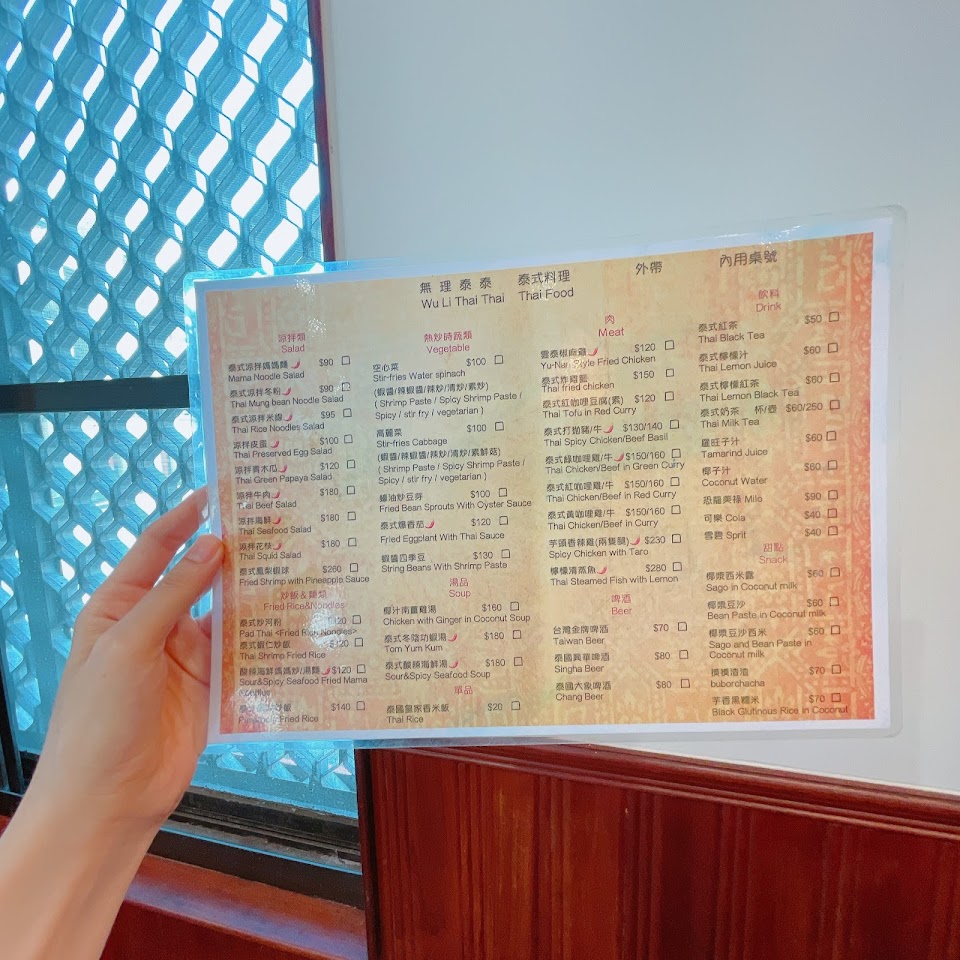 無理泰泰 泰式料理 外帶 內用桌號
Wu Li Thai Thai Thai Food
涼拌類
Salad
泰式涼拌媽媽麵 $90
Mama Noodle Salad
泰式涼拌冬粉 $90
Thai Mung bean Noodle Salad
泰式涼拌米線 $95
Thai Rice Noodles Salad
涼拌皮蛋 $100
Thai Preserved Egg Salad
涼拌青木瓜 $120
Thai Green Papaya Salad
涼拌牛肉 $180
Thai Beef Salad
涼拌海鮮 $180
Thai Seafood Salad
涼拌花枝 $180
Thai Squid Salad
泰式鳳梨蝦球 $260
Fried Shrimp with Pineapple Sauce
炒飯&麵類
Fried Rice&Noodles
泰式炒河粉 $120
Pad Thai <Fried Rich Noodles>
泰式蝦仁炒飯 $120
Thai Shrimp Fried Rice
酸辣海鮮媽媽炒/湯麵 $120
Sour&Spicy Seafood Fried Mama
炒飯 $140
Fried Rice
熱炒時蔬類
Vegetable
空心菜 $100
Stir-fries Water spinach
(蝦醬/辣蝦醬/辣炒/清炒/素炒)
( Shrimp Paste / Spicy Shrimp Paste /
Spicy / stir fry / vegetarian )
高麗菜 $100
Stir-fries Cabbage
(蝦醬/辣蝦醬/辣炒/清炒/素鮮菇)
( Shrimp Paste / Spicy Shrimp Paste /
Spicy / stir fry / vegetarian )
蠔油炒豆芽 $100
Fried Bean Sprouts With Oyster Sauce
泰式爆香茄 $120
Fried Eggplant With Thai Sauce
蝦醬四季豆 $130
String Beans With Shrimp Paste
湯品
Soup
椰汁南薑雞湯 $160
Chicken with Ginger in Coconut Soup
泰式冬陰功蝦湯 $180
Tom Yum Kum
泰式酸辣海鮮湯 $180
Sour&Spicy Seafood Soup
單品
泰國皇家香米飯 $20
Thai Rice
肉
Meat
雲泰椒麻雞 $120
Yu-Nan Style Fried Chicken
泰式炸雞 $150
Thai fried chicken
泰式紅咖哩豆腐(素) $120
Thai Tofu in Red Curry
泰式打拋豬/牛 $130/140
Thai Spicy Chicken/Beef Basil
泰式綠咖哩雞/牛 $150/160
Thai Chicken/Beef in Green Curry
泰式紅咖哩雞/牛 $150/160
Thai Chicken/Beef in Red Curry
泰式黃咖哩雞/牛 $150/160
Thai Chicken/Beef in Curry
芋頭香辣雞(兩隻腿) $230
Spicy Chicken with Taro
檸檬清蒸魚 $280
Thai Steamed Fish with Lemon
啤酒
Beer
台灣金牌啤酒 $70
Taiwan Beer
泰國興華啤酒 $80
Singha Beer
泰國大象啤酒 $80
Chang Beer
飲料
Drink
泰式紅茶 $50
Thai Black Tea
泰式檸檬汁 $60
Thai Lemon Juice
泰式檸檬紅茶 $60
Thai Lemon Black Tea
泰式奶茶 杯/壺 $60/250
Thai Milk Tea
羅旺子汁 $60
Tamarind Juice
椰子汁 $60
Coconut Water
恐龍美祿 Milo $90
可樂 Cola $40
雪碧 Sprit $40
甜點
Snack
椰漿西米露 $60
Sago in Coconut milk
椰漿豆沙 $60
Bean Paste in Coconut milk
椰漿豆沙西米 $60
Sago and Bean Paste in
Coconut milk
摸摸渣渣 $70
buborchacha
芋香黑糯米 $70
Black Glutinous Rice in Coconut